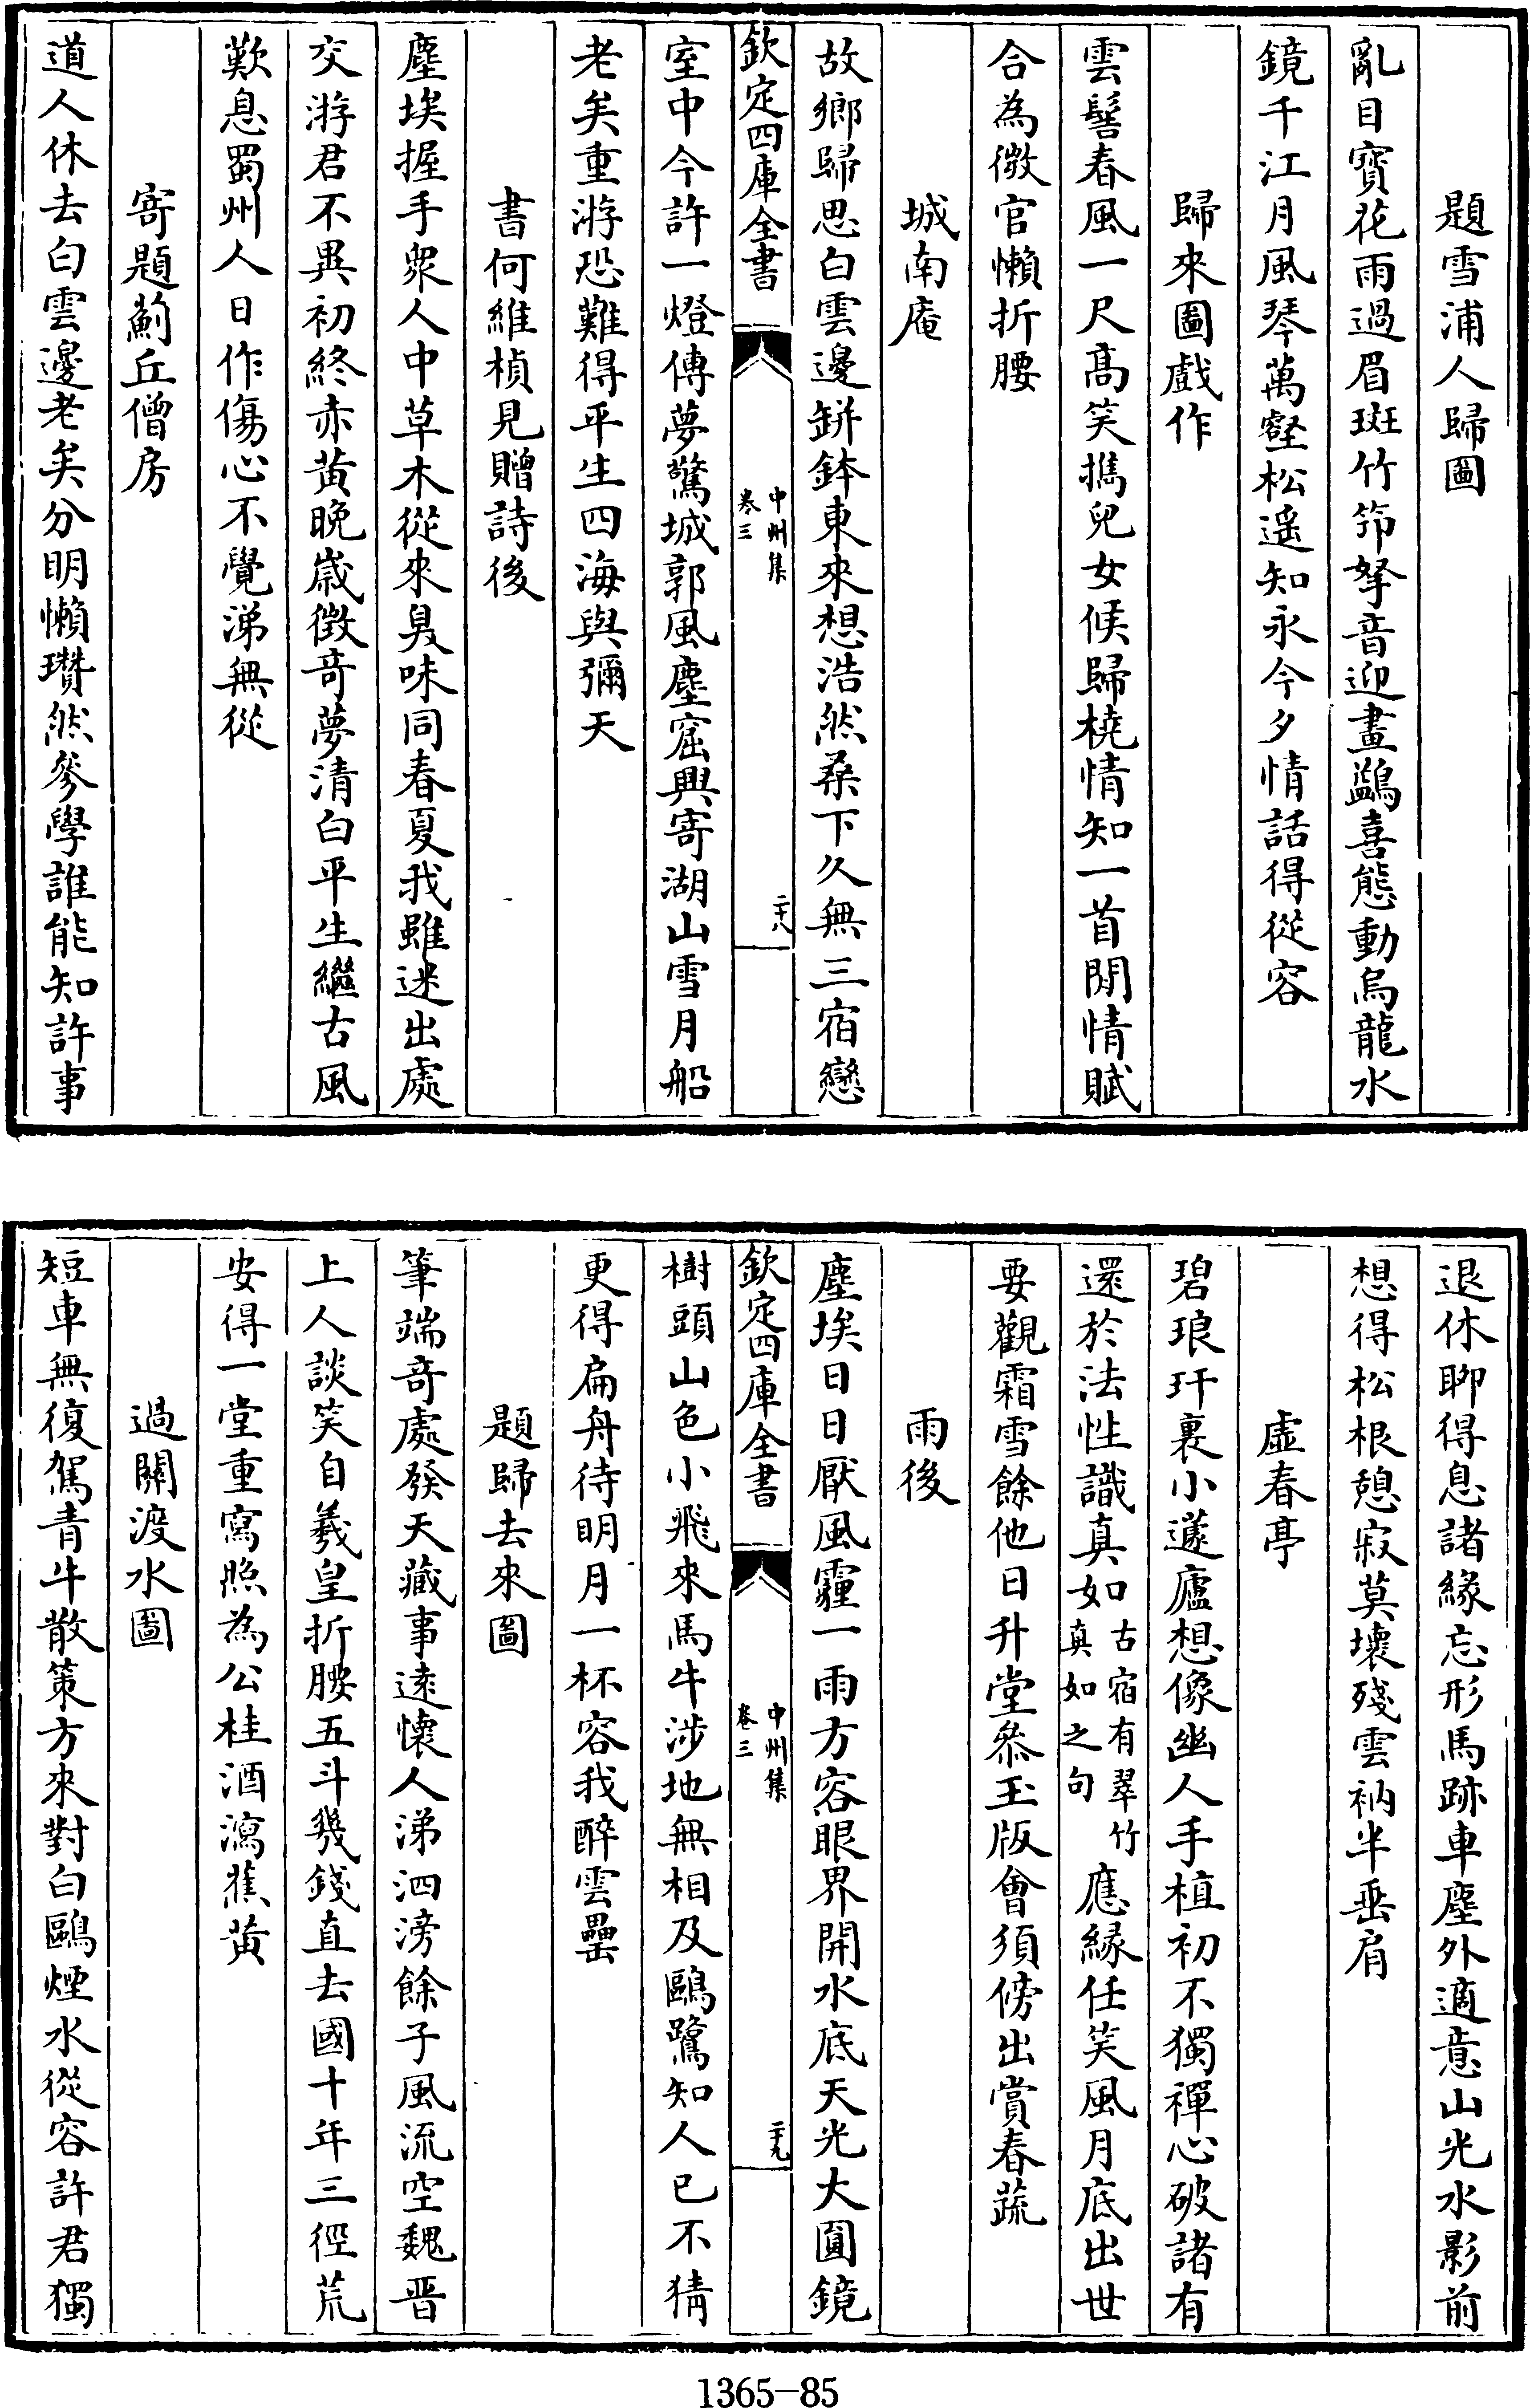 題雪浦人歸圖
亂目寶花雨過眉斑竹笻拏音迎畫鷁喜態動烏龍水
鏡千江月風琴萬壑松遥知永今夕情話得從容
歸來圖戲作
雲髻春風一尺髙笑携兒女候歸橈情知一首閒情賦
合為微官懶折腰
城南庵
故鄉歸思白雲邊缾鉢東來想浩然桑下久無三宿戀
欽定四庫全書
中州集
卷三
二十八
室中今許一燈傳夢驚城郭風塵窟興寄湖山雪月船
老矣重游恐難得平生四海與彌天
書何維楨見贈詩後
塵埃握手衆人中草木從來臭味同春夏我雖迷出處
交游君不異初終赤黄晚歳徴竒夢清白平生繼古風
歎息蜀州人日作傷心不覺涕無從
寄題薊丘僧房
道人休去白雲邊老矣分明懶瓚然參學誰能知許事
退休聊得息諸緣忘形馬跡車塵外適意山光水影前
想得松根憩寂莫壞殘雲衲半垂肩
虛春亭
碧琅玕裏小蘧廬想像幽人手植初不獨禪心破諸有
還於法性識真如古宿有翠竹真如之句應緣任笑風月底出世
要觀霜雪餘他日升堂叅玉版會須傍出賞春蔬
雨後
塵埃日日厭風霾一雨方容眼界開水底天光大圓鏡
欽定四庫全書
中州集
卷三
二十九
樹頭山色小飛來馬牛涉地無相及鷗鷺知人已不猜
更得扁舟待明月一杯容我醉雲罍
題歸去來圖
筆端竒處發天藏事逺懷人涕泗滂餘子風流空魏晋
上人談笑自羲皇折腰五斗幾錢直去國十年三徑荒
安得一堂重寫照為公桂酒瀉蕉黄
過關渡水圖
短車無復駕青牛散策方來對白鷗煙水從容許君獨
1365-85